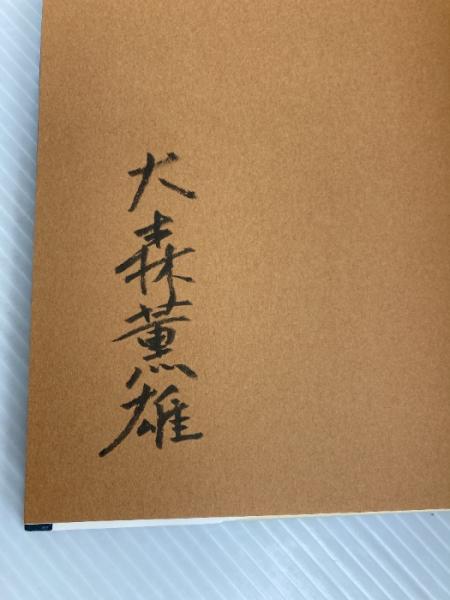 大森薫雄